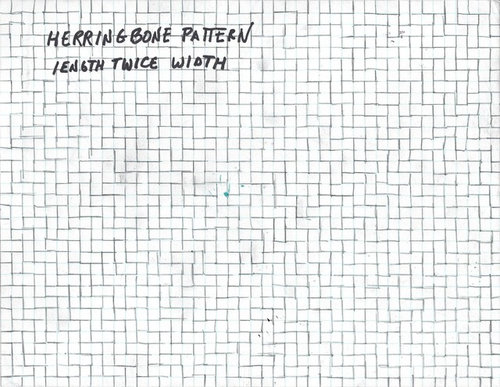 HERRINGBONE PATTERN
LENGTH TWICE WIDTH